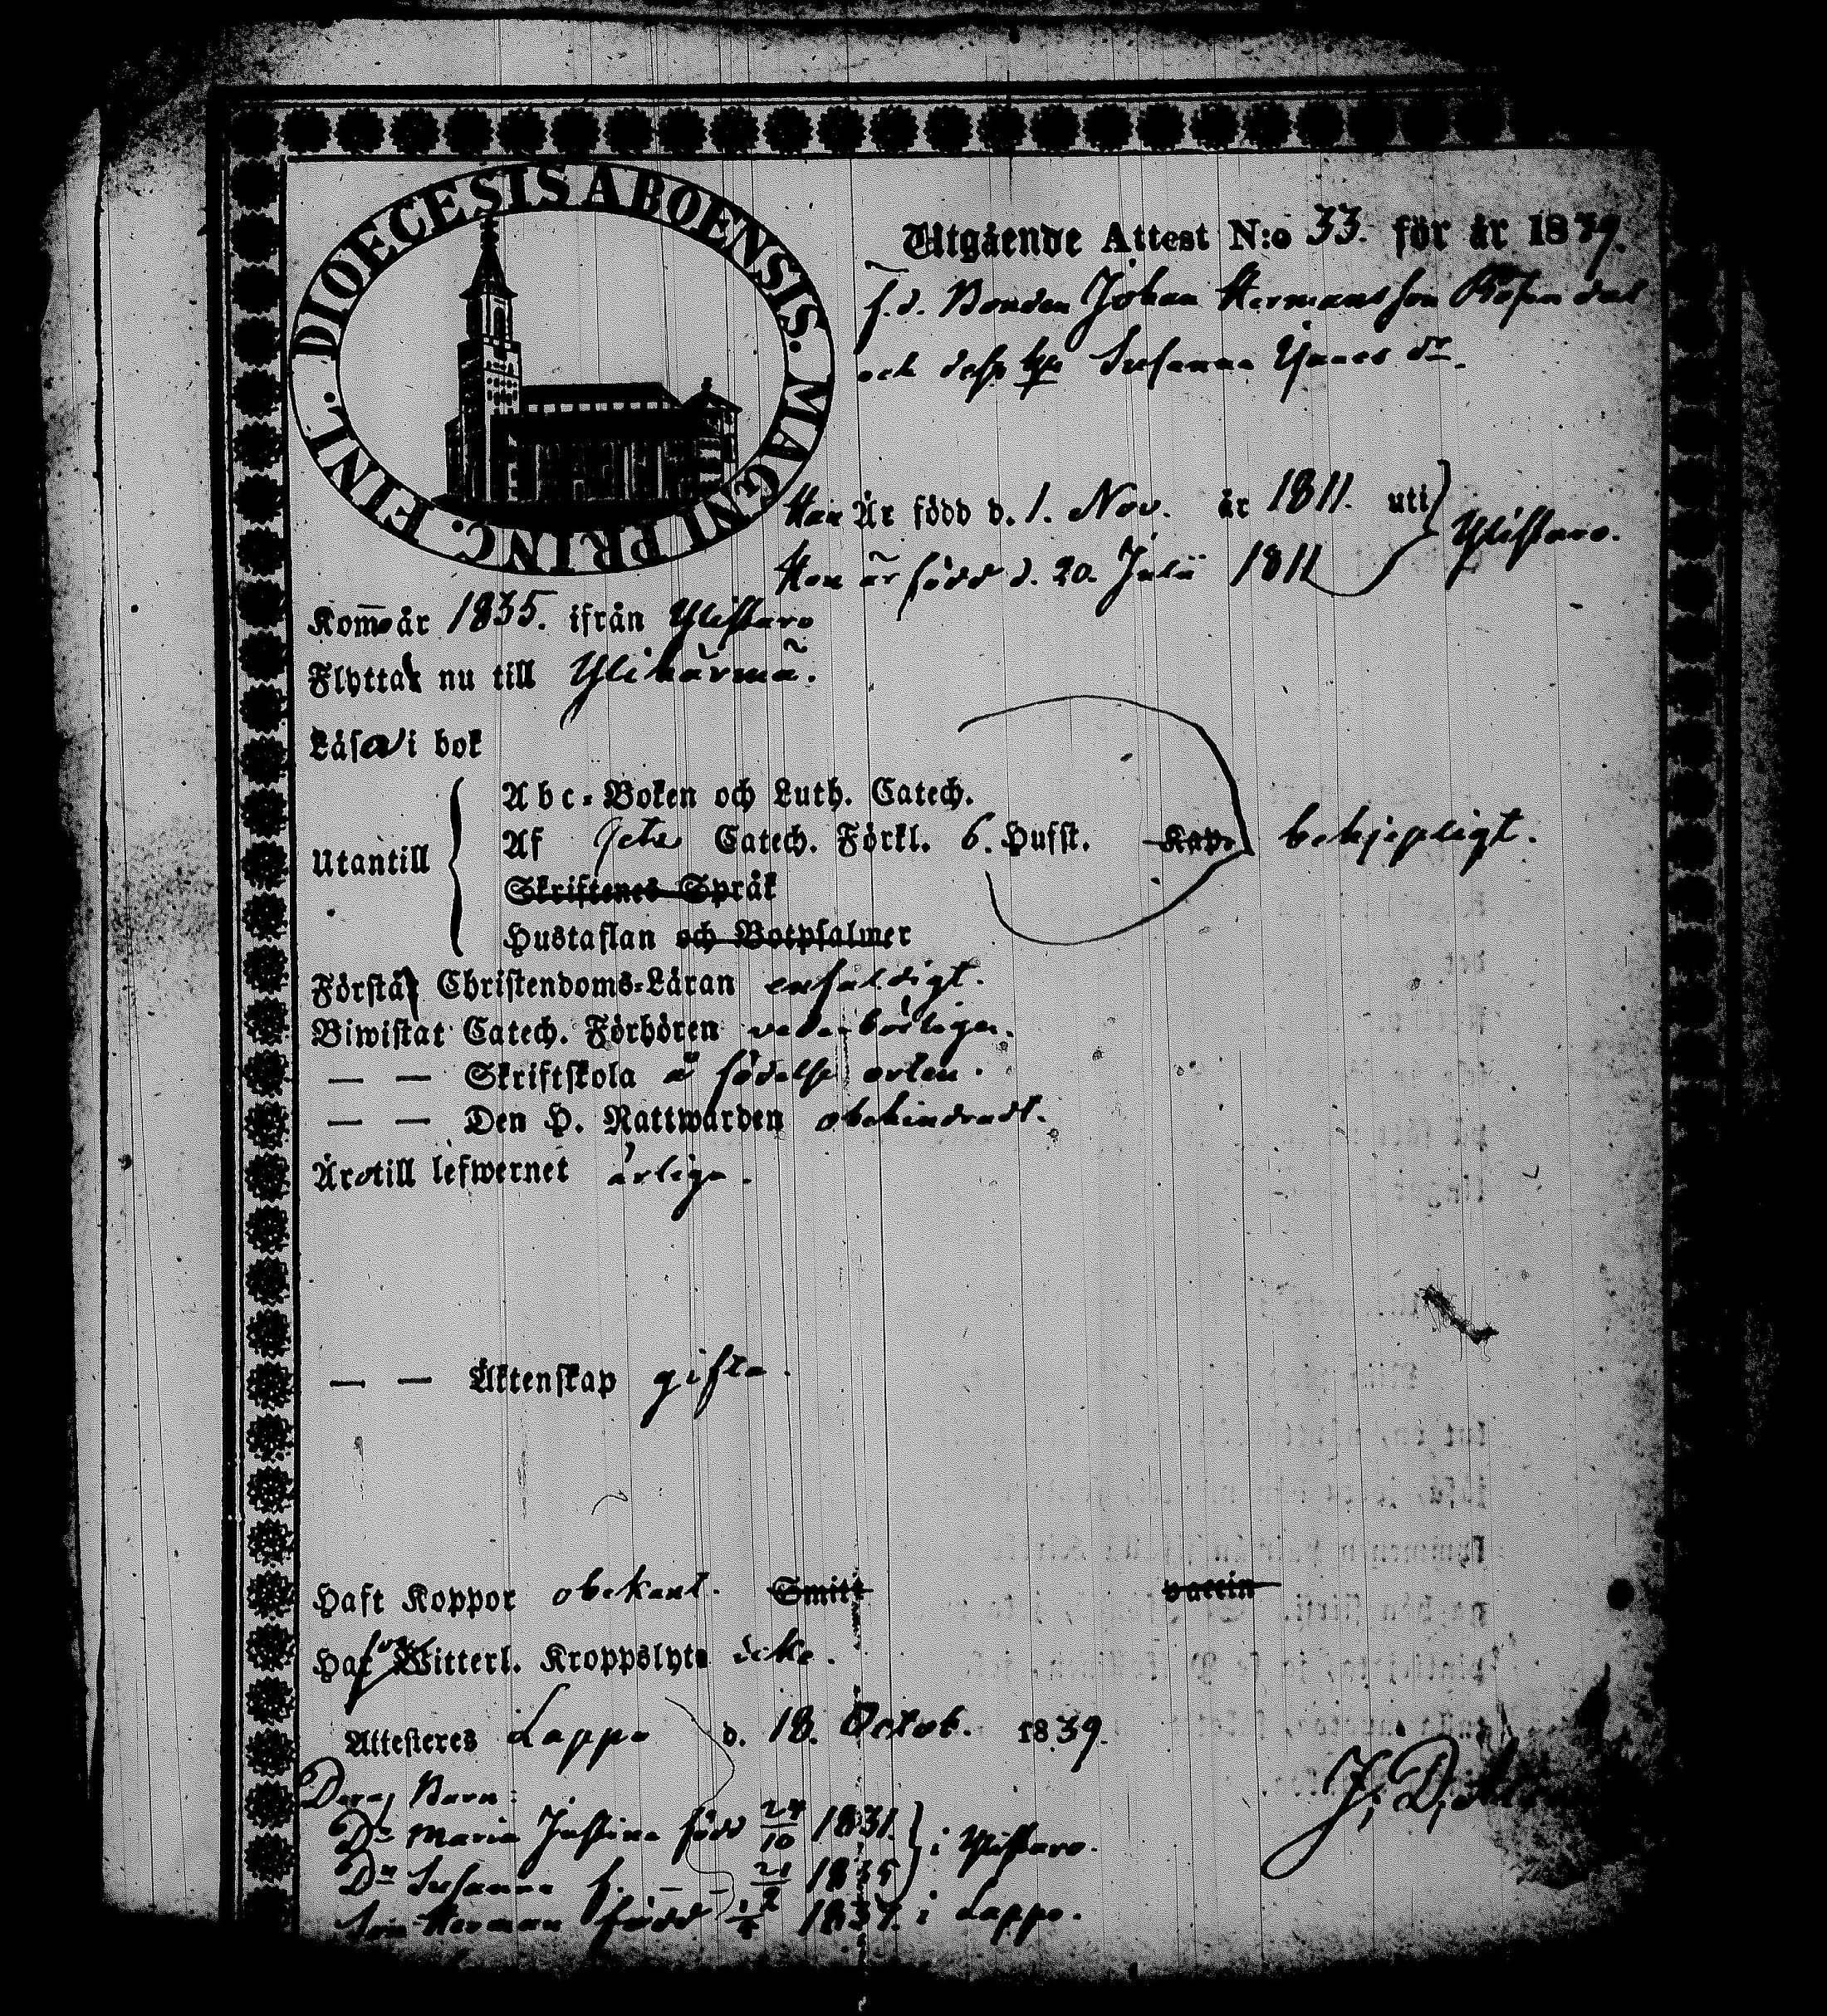 DIOECESIS ABOENSIS. MAGNI PRINC. FINL.
Utgående Attest N:o 33. för år 1839.
f.d. Bonden Johan Hermansson Rosendal
och dess Hu Susanna Danr.
Han Är född d. 1. Nov. år 1811. uti
Hon är född d. 20. Julii 1811
Ylistaro.
Kommo år 1835. ifrån Ylistaro
Flytta nu till Ylihärmä.
Läsa i bok
Utantill
Abc-Boken och Luth. Catech.
Af Catech. Förkl. 6. Hufst. Kap.
Skriftenes Språk
Hustaflan och Botpsalmer
behjepligt.
Förstå Christendoms-Läran enfaldigt.
Biwistat Catech. Förhören vederbörligen.
— — Skriftskola å födelse orten.
— — Den H. Nattwarden obehindradt.
Äro till lefwernet ärliga.
— — Äktenskap gifta.
Haft Koppor obekant. Smitt vaccin
Haf Witterl. Kroppslyte icke.
Attesteres Lappo d. 18. Octob. 1839.
Deras Barn:
Dr Maria Justina född 24/10 1831.
Dr Susanna f. — — 21/2 1835
i Ylistaro.
Son Herman född 1837. i Lappo.